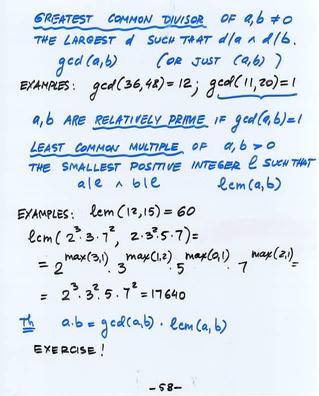 GREATEST COMMON DIVISOR OF a,b ≠ 0
THE LARGEST d SUCH THAT d/a ∧ d/b.
gcd(a,b) (OR JUST (a,b))
EXAMPLES: gcd(36,48)=12; gcd(11,20)=1
a,b ARE RELATIVELY PRIME IF gcd(a,b)=1
LEAST COMMON MULTIPLE OF a,b > 0
THE SMALLEST POSITIVE INTEGER l SUCH THAT
a|l ∧ b|l lcm(a,b)
EXAMPLES: lcm(12,15) = 60
lcm(2³·3·7², 2·3²·5·7)=
= 2^max(3,1) · 3^max(1,2) · 5^max(0,1) · 7^max(2,1) =
= 2³·3²·5·7² = 17640
Th a·b = gcd(a,b) · lcm(a,b)
EXERCISE!
-58-